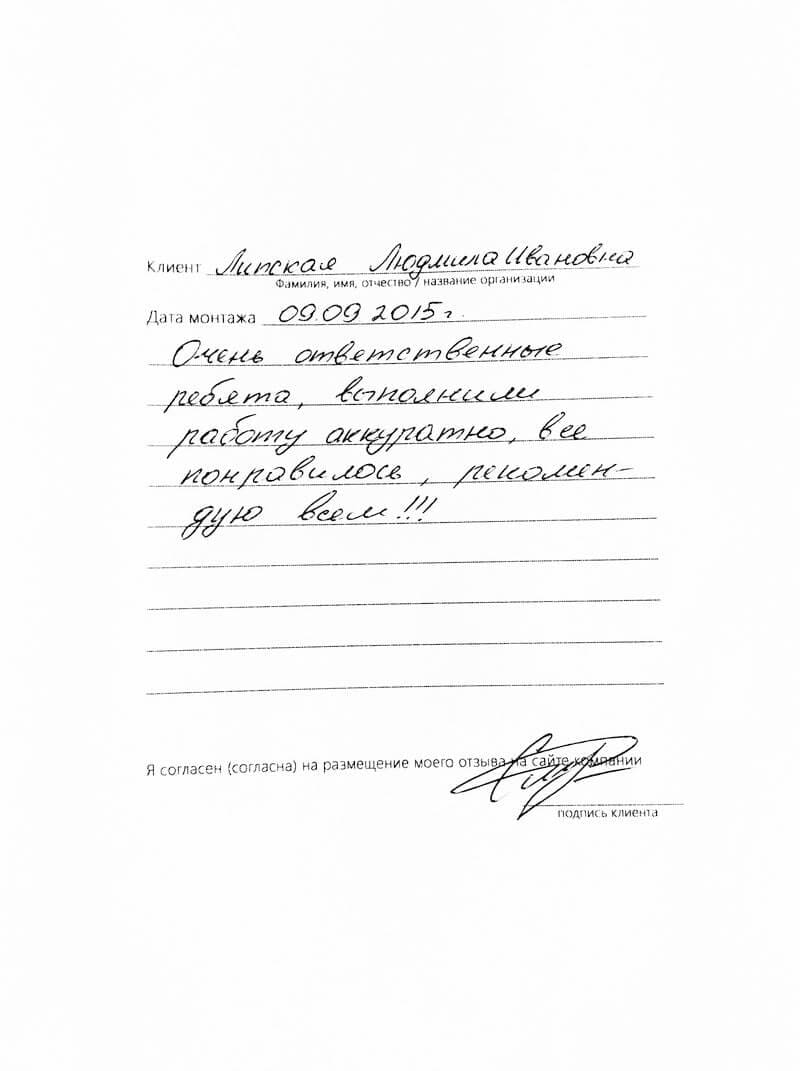 Клиент Липская Людмила Ивановна
Фамилия, имя, отчество / название организации
Дата монтажа 09.09 2015г.
Очень ответственные
ребята, выполнили
работу аккуратно, все
понравилось, рекомен-
дую всем!!!
Я согласен (согласна) на размещение моего отзыва на сайте компании
подпись клиента